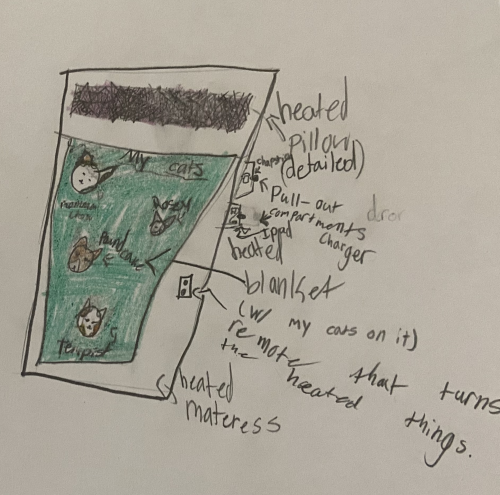 heated
pillow
(detailed)
My cats
Pull-out
compartments
Ipad charger
heated
blanket
(w/ my cats on it)
remote that turns
the heated things.
heated
materess